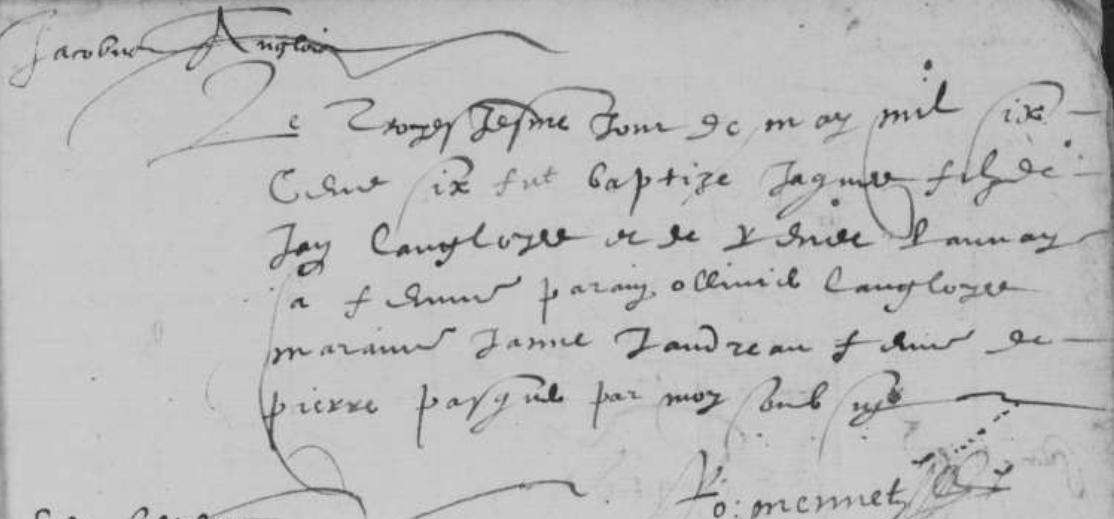 Jacobus Anglois
Le troyesiesme Jour de may mil six
Cens six fut baptize Jaques filz de
Jan Langloyes et de Renee Launay
sa femme parain ollivier Langloyes
maraine Janne Jaudreau femme de
pierre pasquer par moy soubsigne
mennet